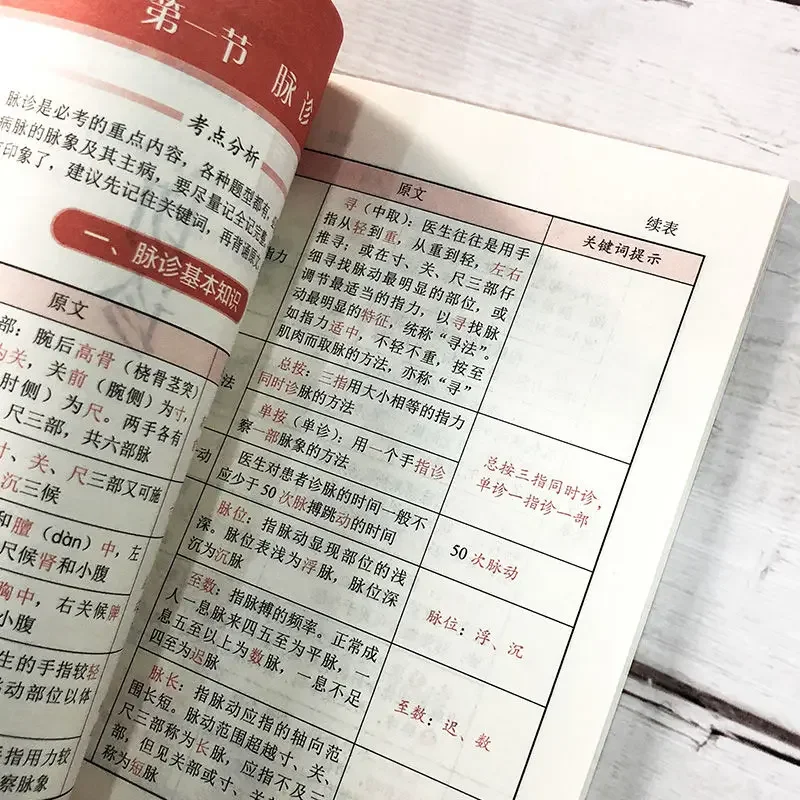 第一节 脉诊
考点分析
脉诊是必考的重点内容，各种题型都有，
病脉的脉象及其主病，要尽量记全记完整，
印象了，建议先记住关键词，再背诵原文
一、脉诊基本知识
原文
部：腕后高骨（桡骨茎突）
为关，关前（腕侧）为寸，
肘侧）为尺。两手各有
尺三部，共六部脉
寸、关、尺三部又可施
沉三候
和膻（dàn）中，左
尺候肾和小腹
胸中，右关候脾
小腹
生的手指较轻
动部位以体
手指用力较
察脉象
续表
原文
关键词提示
指力
寻（中取）：医生往往是用手
指从轻到重，从重到轻，左右
推寻；或在寸、关、尺三部仔
细寻找脉动最明显的部位，或
调节最适当的指力，以寻找脉
动最明显的特征，统称“寻法”。
如指力适中，不轻不重，按至
肌肉而取脉的方法，亦称“寻”
法
总按：三指用大小相等的指力
同时诊脉的方法
单按（单诊）：用一个手指诊
察一部脉象的方法
总按三指同时诊，
单诊一指诊一部
动
医生对患者诊脉的时间一般不
应少于 50 次脉搏跳动的时间
50 次脉动
脉位：指脉动显现部位的浅
深。脉位表浅为浮脉，脉位深
沉为沉脉
脉位：浮、沉
至数：指脉搏的频率。正常成
人一息脉来四五至为平脉，一
息五至以上为数脉，一息不足
四至为迟脉
至数：迟、数
脉长：指脉动应指的轴向范
围长短。脉动范围超越寸、关、
尺三部称为长脉，应指不及三
部，但见关部或寸、关
称为短脉